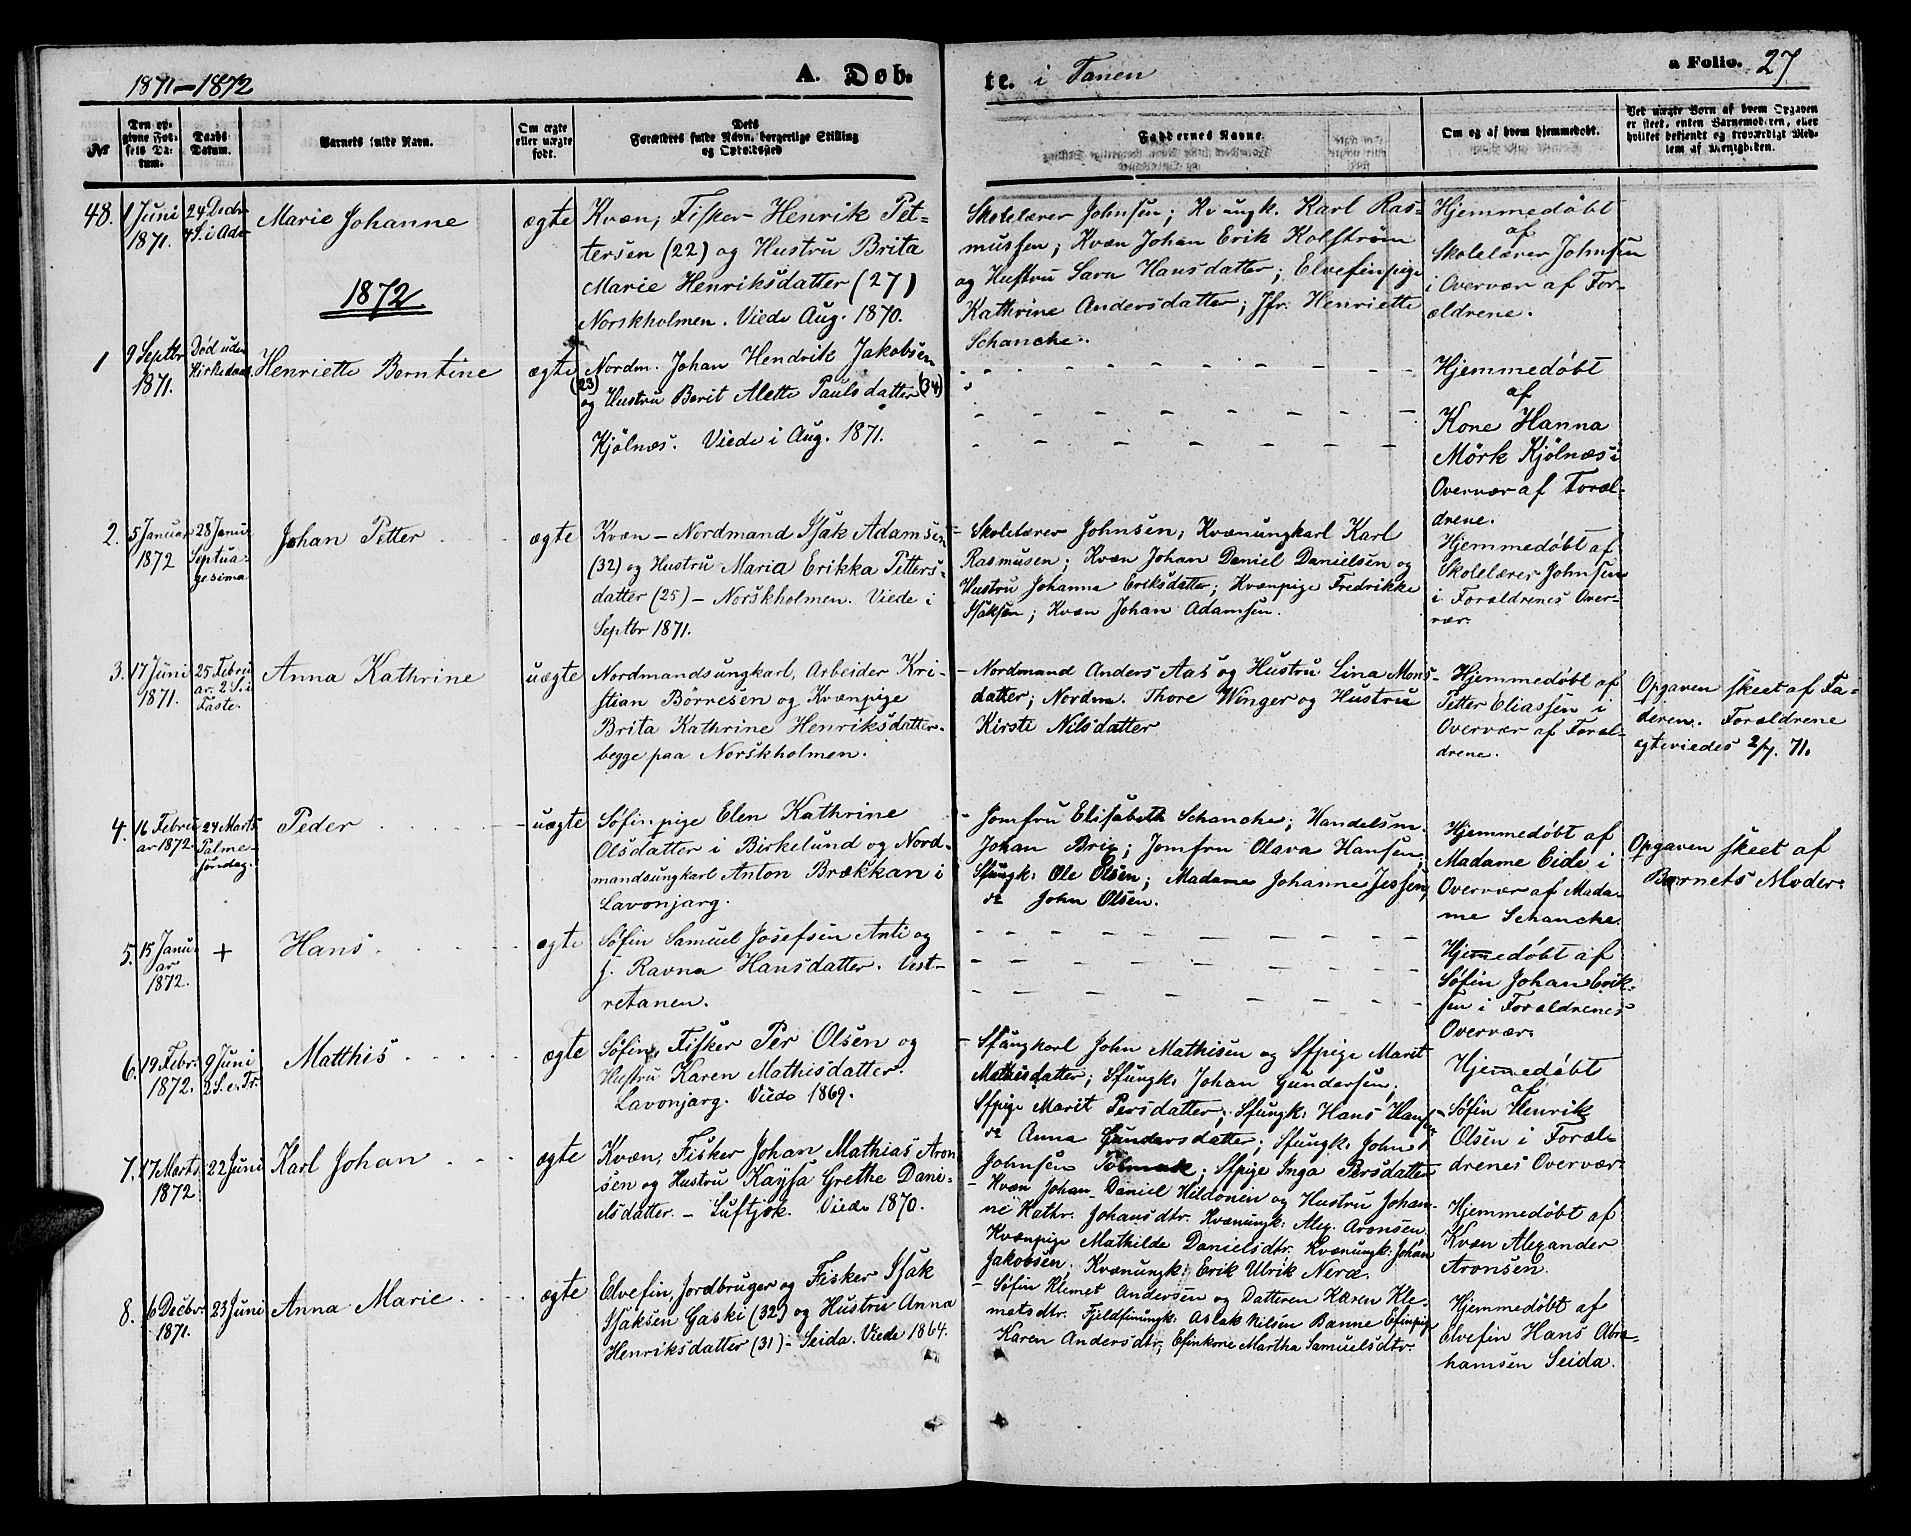 1871-1872
A. Døb-
te. i Tanen
a Folio. 27
№
Den op-
givne Fød-
sels Da-
tum.
Daabs
Datum.
Barnets fulde Navn.
Om ægte
eller uægte
født.
Dets
Forældres fulde Navn, borgerlige Stilling
og Opholdssted
Faddernes Navne.
Om og af hvem hjemmedøbt.
Ved uægte Børn af hvem Opgaven
er skeet, enten Barnemoderen, eller
hvilket bekjendt og troværdigt Med-
lem af Menigheden.
48.
1 Juni
1871.
24 Decbr
4 S. i Adv
Marie Johanne
ægte
Kvæn, Fisker Henrik Pet-
tersen (22) og Hustru Brita
Marie Henriksdatter (27)
Norskholmen. Viede Aug. 1870.
Skolelærer Johnsen; Kvungk. Karl Ras-
mussen; Kvæn Johan Erik Kolström
og Hustru Sara Hansdatter; Elvefinpige
Kathrine Andersdatter; Jfr. Henriette
Schanche.
Hjemmedøbt
af
Skolelærer Johnsen
i Overvær af For-
ældrene.
1872
1
9 Septbr
1871.
Død uden
Kirkedaab
Henriette Berntine
ægte
Nordm. Johan Hendrik Jakobsen
(23)
og Hustru Berit Alette Paulsdatter (34)
Kjölnæs. Viede i Aug. 1871.
Hjemmedøbt
af
Kone Hanna
Mörk Kjölnæs i
Overvær af Foræl-
drene.
2.
5 Januar
1872
28 Janu
Septua-
gesima
Johan Petter
ægte
Kvæn - Nordmand Isak Adamsen
(32) og Hustru Maria Erikka Petters-
datter (25) - Norskholmen. Viede i
Septbr 1871.
- Skolelærer Johnsen, Kvænungkarl Karl
Rasmusen; Kvæn Johan Daniel Danielsen og
Hustru Johanna Eriksdatter; Kvænpige Fredrikke
Isaksen; Kvæn Johan Adamsen.
Hjemmedøbt af
Skolelærer Johnsen
i Forældrenes Over-
vær.
3.
17 Juni
1871.
25 Febru
ar. 2 S. i
Faste.
Anna Kathrine
uægte
Nordmandsungkarl, Arbeider Kri-
stian Börresen og Kvænpige
Brita Kathrine Henriksdatter.
begge paa Norskholmen.
- Nordmand Anders Aas og Hustru Lina Mons-
datter; Nordm. Thore Winger og Hustru
Kirste Nilsdatter
Hjemmedøbt af
Petter Eliassen i
Overvær af Foræl-
drene.
Opgaven skeet af Fa-
deren. Forældrene
ægteviedes 2/7. 71.
4.
16 Febru
ar 1872.
24 Marts
Palme-
söndag.
Peder
uægte
Søfinpige Elen Kathrine
Olsdatter i Birkelund og Nord-
mandsungkarl Anton Brækkan i
Lavonjarg.
- Jomfru Elisabeth Schanche; Handelsm.
Johan Brix; Jomfru Olava Hansen;
Sfungk: Ole Olsen; Madame Johanne Jessen,
do John Olsen.
Hjemmedøbt af
Madame Eide i
Overvær af Mada-
me Schanche.
Opgaven skeet af
Barnets Moder.
5.
15 Janu-
ar
1872.
+
Hans.
ægte
Søfin Samuel Josefsen Anti og
h. Ravna Hansdatter. Vest-
retanen.
Hjemmedøbt af
Søfin Johan Erik-
sen i Forældrenes
Overvær.
6.
19 Febr.
1872.
9 Juni
2 S. e. Tr.
Matthis
ægte
Søfin, Fisker Per Olsen og
Hustru Karen Mathisdatter.
Lavonjarg. Viede 1869.
- Sfungkarl John Mathisen og Sfpige Marit
Mathisdatter; Sfungk: Johan Gundersen;
Sfpige Marit Persdatter; Sfungk: Hans Hansen
do Anna Gundersdatter; Sfungk: John
Johnsen Tolmak; Sfpige Inga Persdatter
Hjemmedøbt
af
Søfin Henrik
Olsen i Foræl-
drenes Overvær.
7.
17 Marts
1872
22 Juni
Karl Johan
ægte
Kvæn, Fisker Johan Mathias Aron
sen og Hustru Kaysa Grethe Dani-
elsdatter. - Luftjok. Viede 1870.
- Kvæn Johan Daniel Hildonen og Hustru Johan-
ne Kathr. Johansdtr. Kvænungk: Alex. Aronsen.
Kvænpige Mathilde Danielsdtr. Kvænungk: Johan
Jakobsen. Kvænungk: Erik Ulrik Nera.
Hjemmedøbt af
Kvæn Alexander
Aronsen.
8.
6 Decbr.
1871.
23 Juni
Anna Marie
ægte
Elvefin, Jordbruger og Fisker Isak
Isaksen Gaski (32) og Hustru Anna
Henriksdatter (31) - Seida. Viede 1864.
- Søfin Klemet Andersen og Datteren Karen Kle-
metsdtr. Fjeldfinungk. Aslak Nilsen Banne Efinpige
Karen Andersdtr; Efinkone Martha Samuelsdtr.
Hjemmedøbt af
Elvefin Hans Abra-
hamsen Seida.